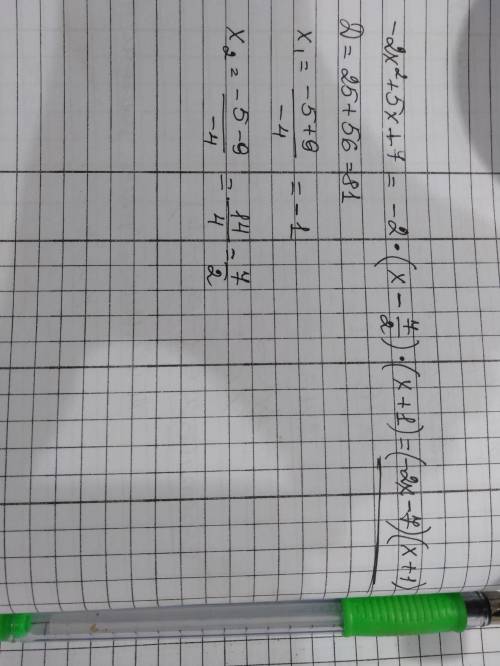 -2x²+5x+7 = -2·(x - 7/2)·(x+1) = (-2x-7)(x+1)
D = 25+56=81
x₁ = -5+9/-4 = -1
x₂ = -5-9/-4 = 14/4 = 7/2